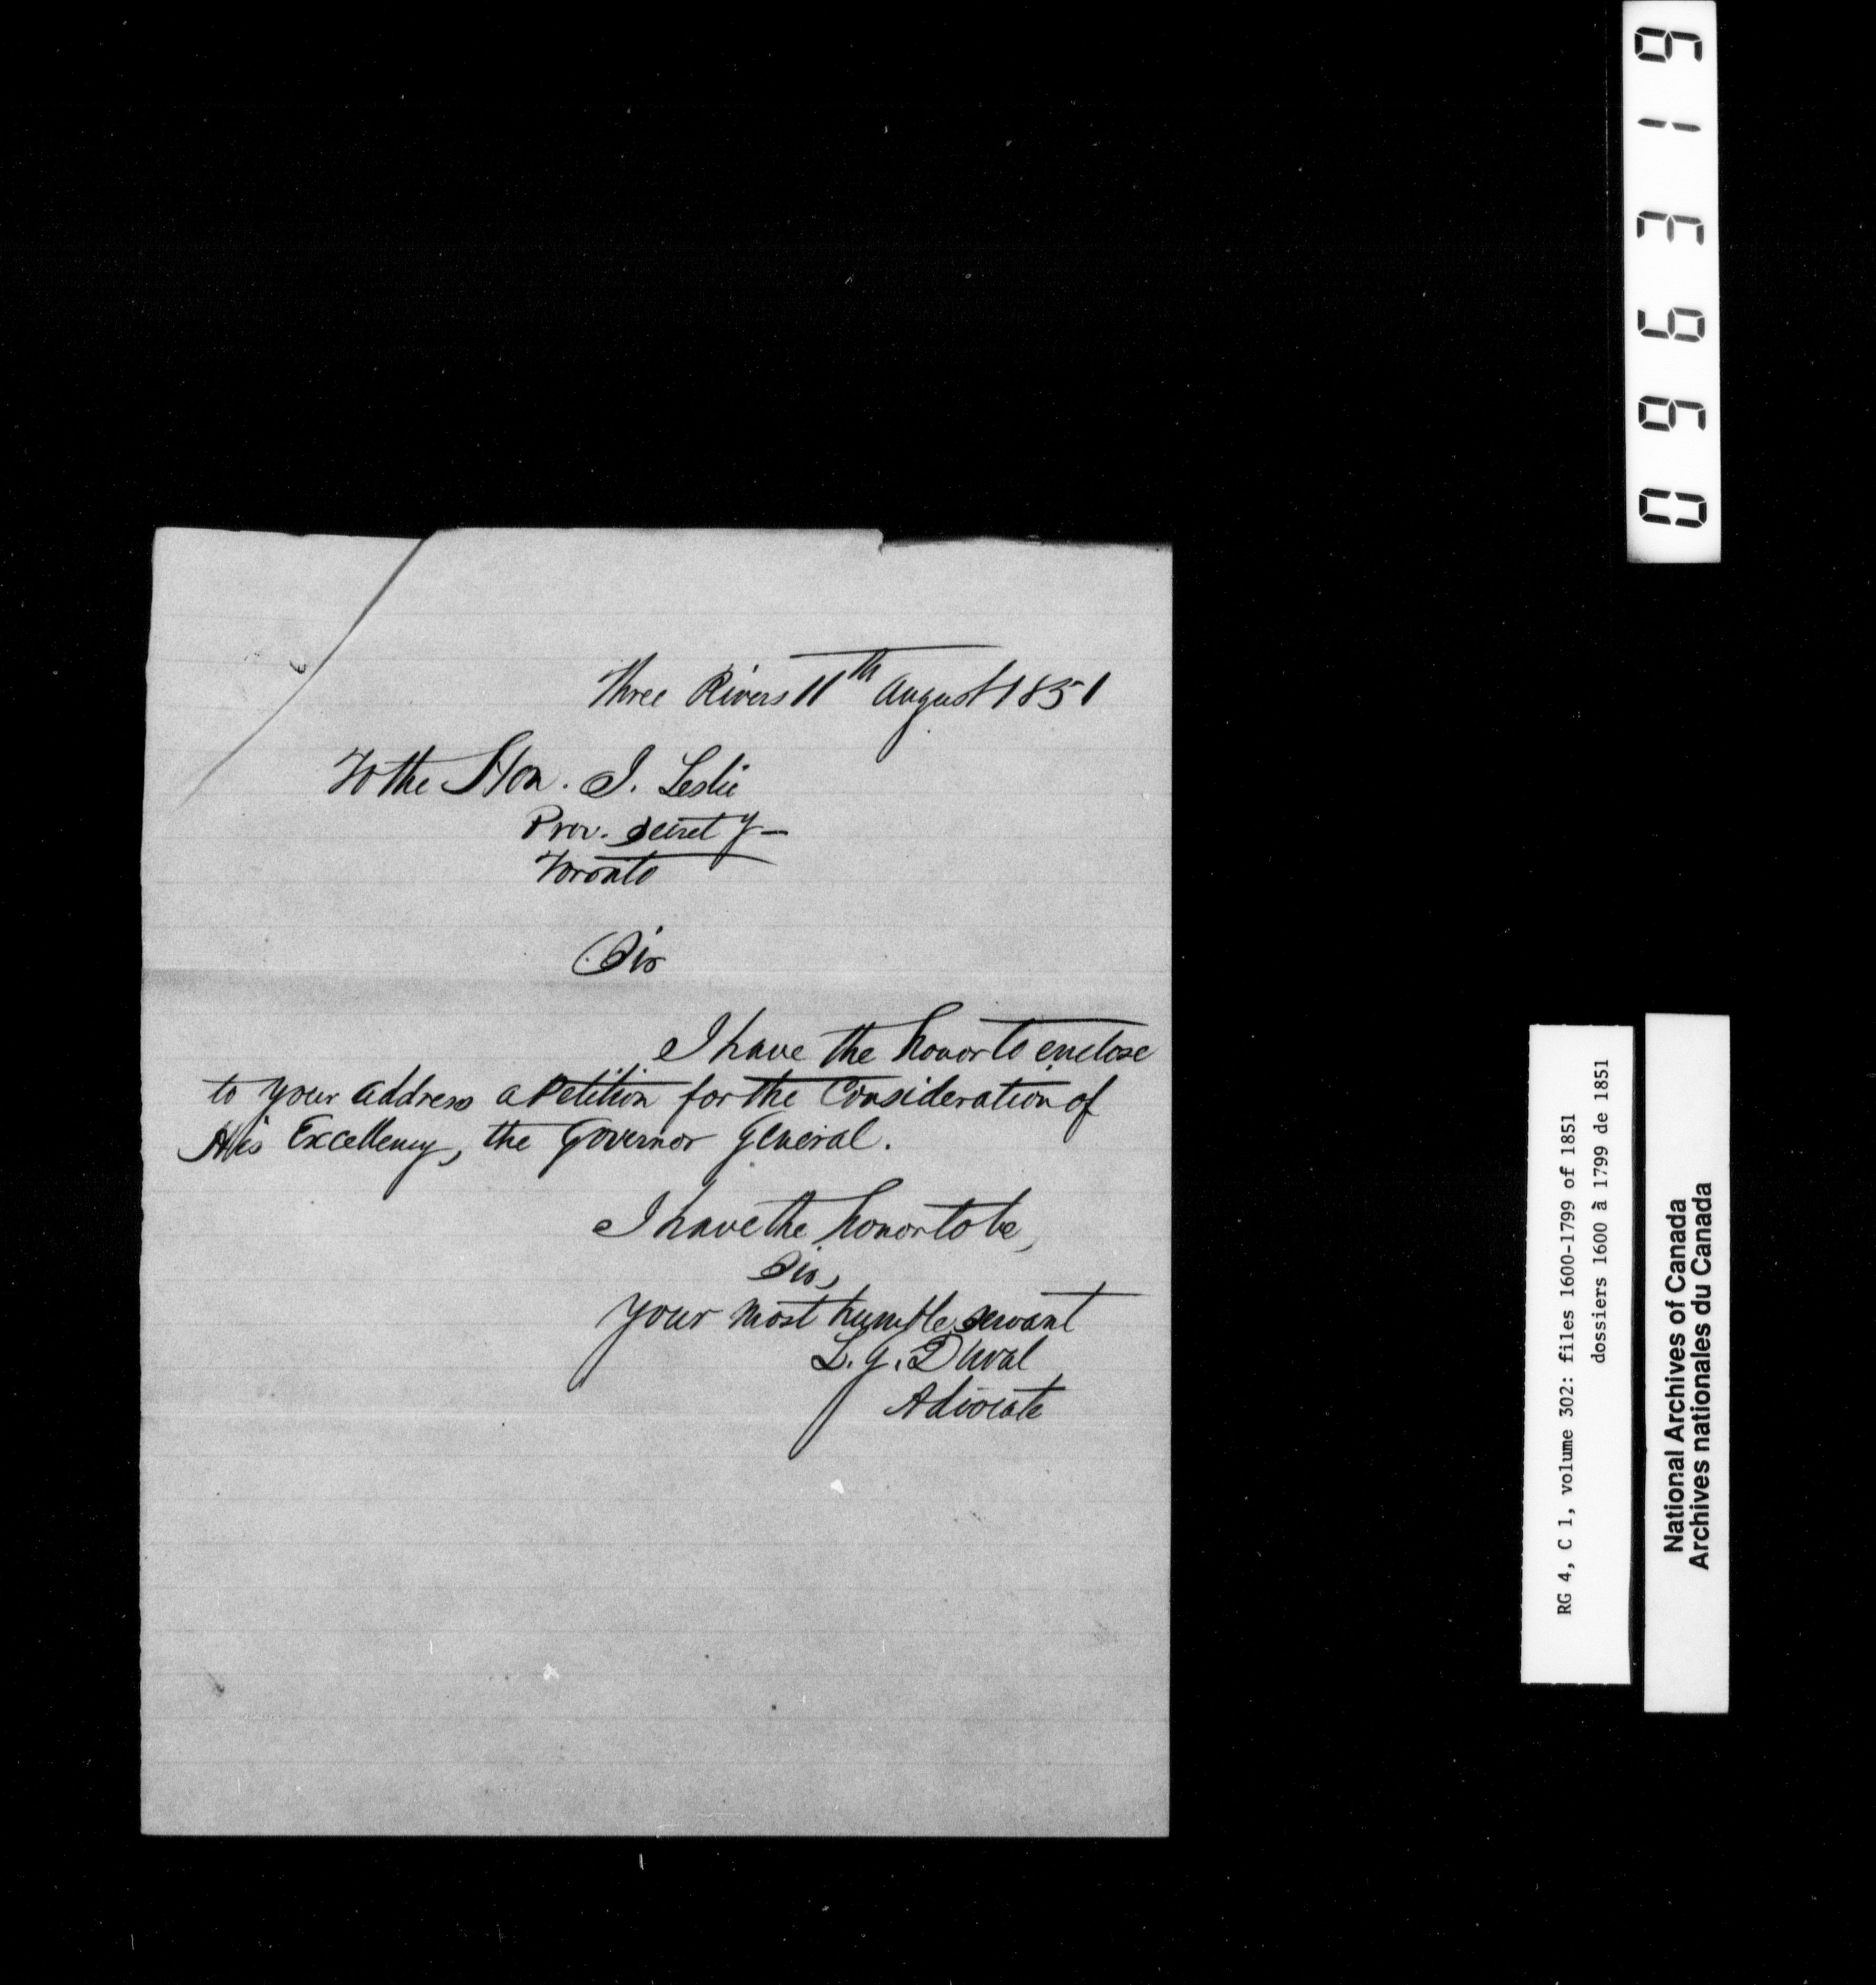 Three Rivers 11th August 1851
To the Hon. J. Leslie
Prov. Secret y—
Toronto
Sir
I have the honor to enclose
to your address a Petition for the Consideration of
His Excellency, the Governor General.
I have the honor to be,
Sir,
Your most humble servant
L. G. Duval
Advocate
096319
RG 4, C 1, volume 302: files 1600-1799 of 1851
dossiers 1600 à 1799 de 1851
National Archives of Canada
Archives nationales du Canada